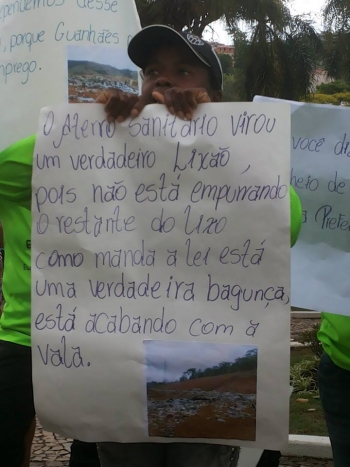 dependemos desse
, porque Guanhães
mprego.
O Aterro Sanitário virou
um verdadeiro Lixão,
pois não está empurrando
o restante do Lixo
como manda a lei está
uma verdadeira bagunça,
está acabando com a
vala.
você di
heto de
a Prefe